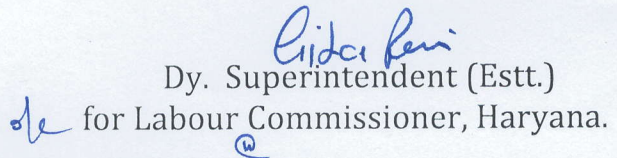 Dy. Superintendent (Estt.)
for Labour Commissioner, Haryana.